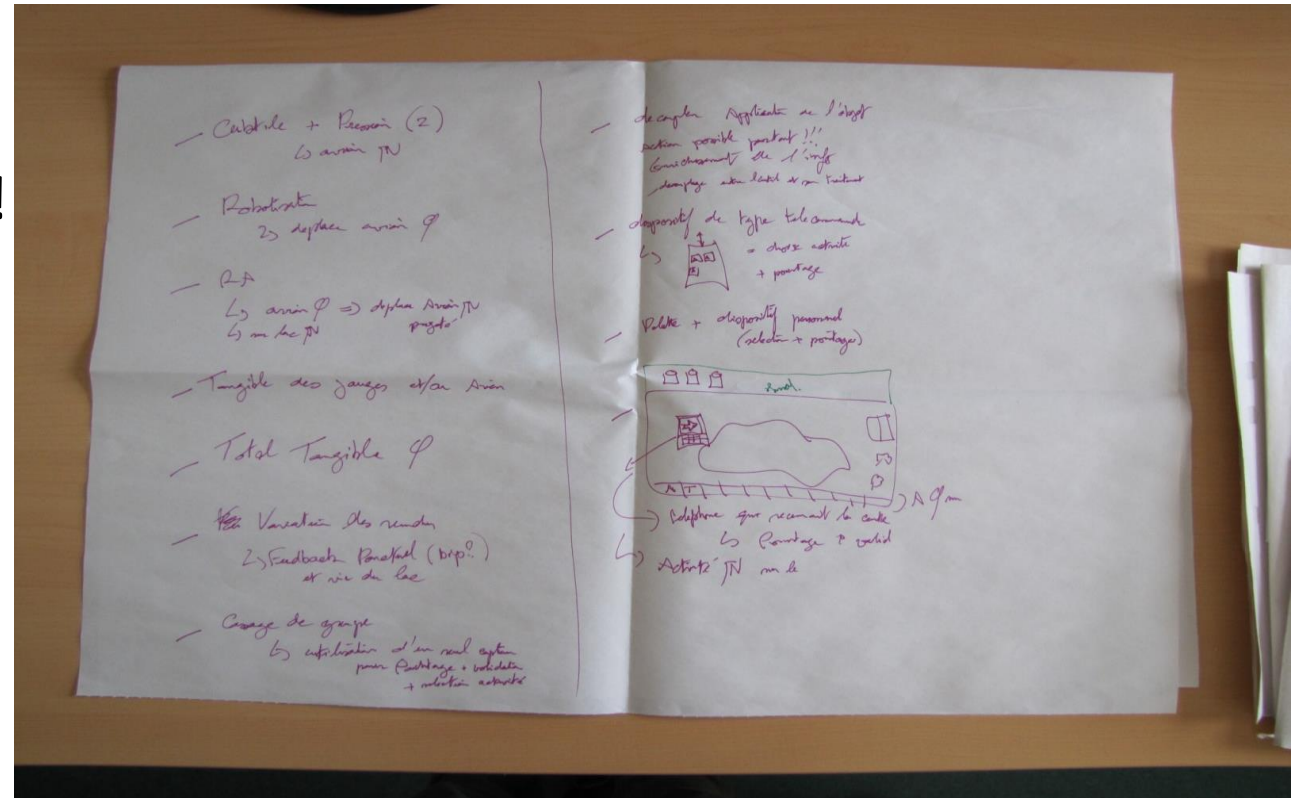 !
+ Pression (2)
↳ avion JN
Robotisation
↳ deplace avion φ
RA
↳ avion φ => deplace Avion JN
↳ sur lac JN projeté
Tangible des jauges et/ou Avion
Total Tangible φ
Variation des rendus
↳ Feedback Ponctuel (bip?)
et vie du lac
Cassage de groupe
↳ utilisation d'un seul capteur
pour Pointage + validation
+ selection activité
decoupler Application de l'objet
action possible partout !!!
Enrichissement de l'info
decouplage entre l'outil et son traitement
dispositif de type telecommande
↳ = choix activité
+ pointage
Palette + dispositif personnel
(selection + pointage)
A T
Telephone qui reconnait la carte
↳ Pointage + valid
↳ Activité JN sur le